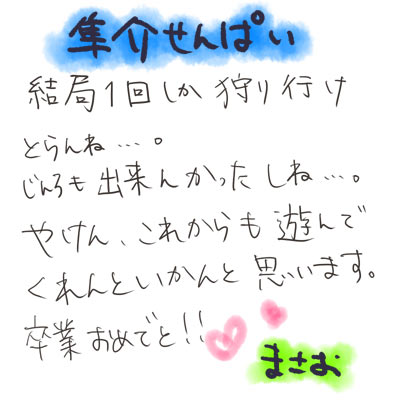 隼介せんぱい
結局1回しか狩り行け
とらんね…。
じんろも出来んかったしね…。
やけん、これからも遊んで
くれんといかんと思います。
卒業おめでと!!
まさお